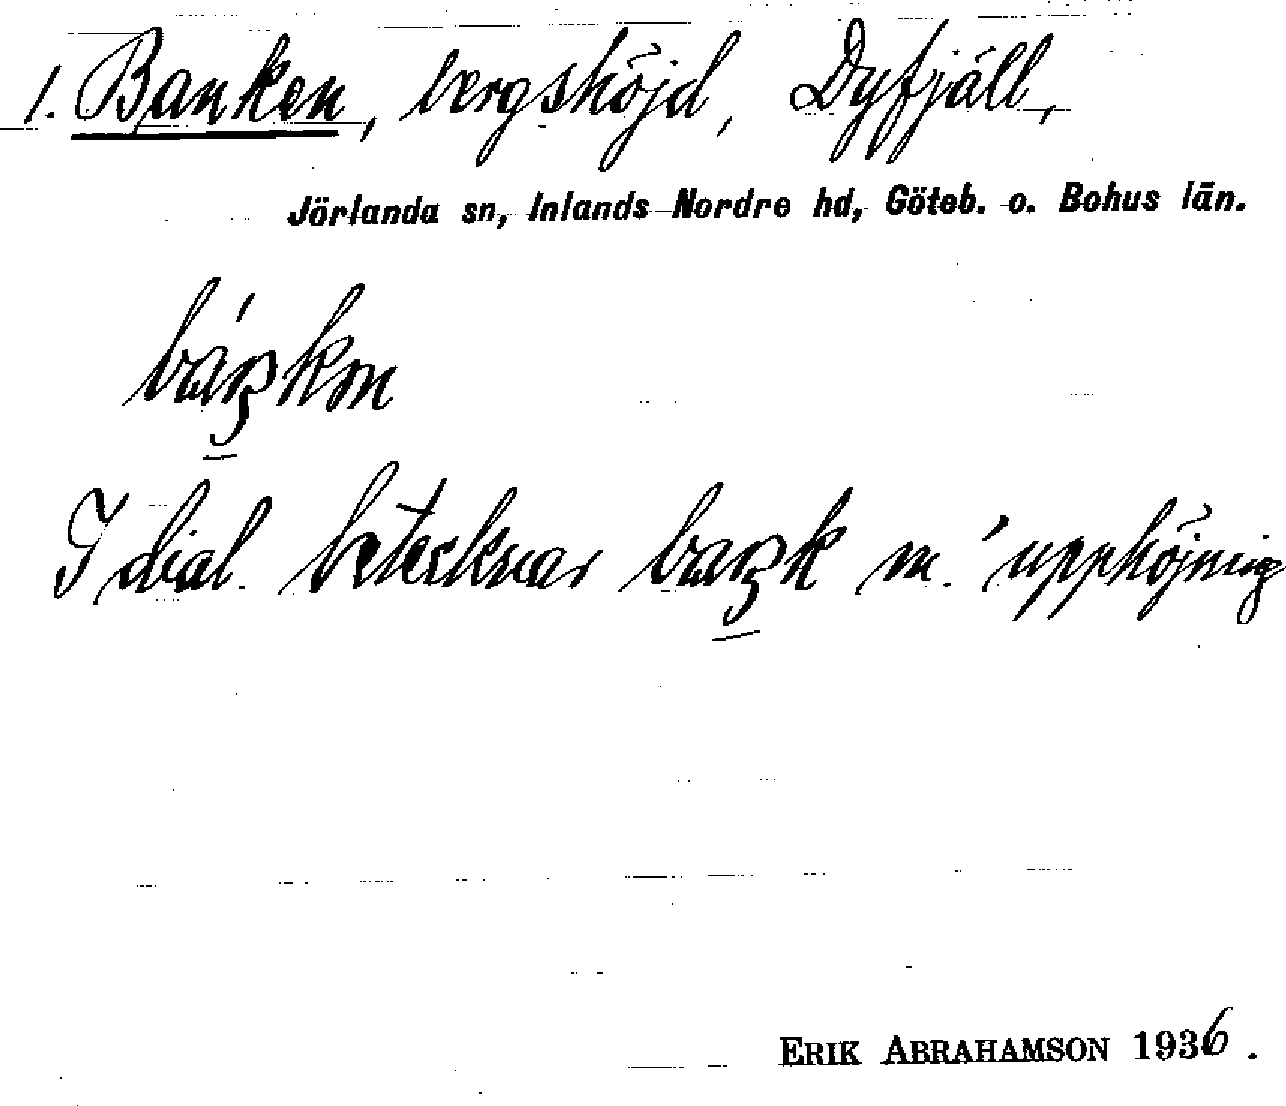 1. Banken, bergshöjd, Dyfjäll,
Jörlanda sn, Inlands Nordre hd, Göteb. o. Bohus län.
báŋkɷn
I dial. betecknar baŋk m. 'upphöjning
ERIK ABRAHAMSON 1936.